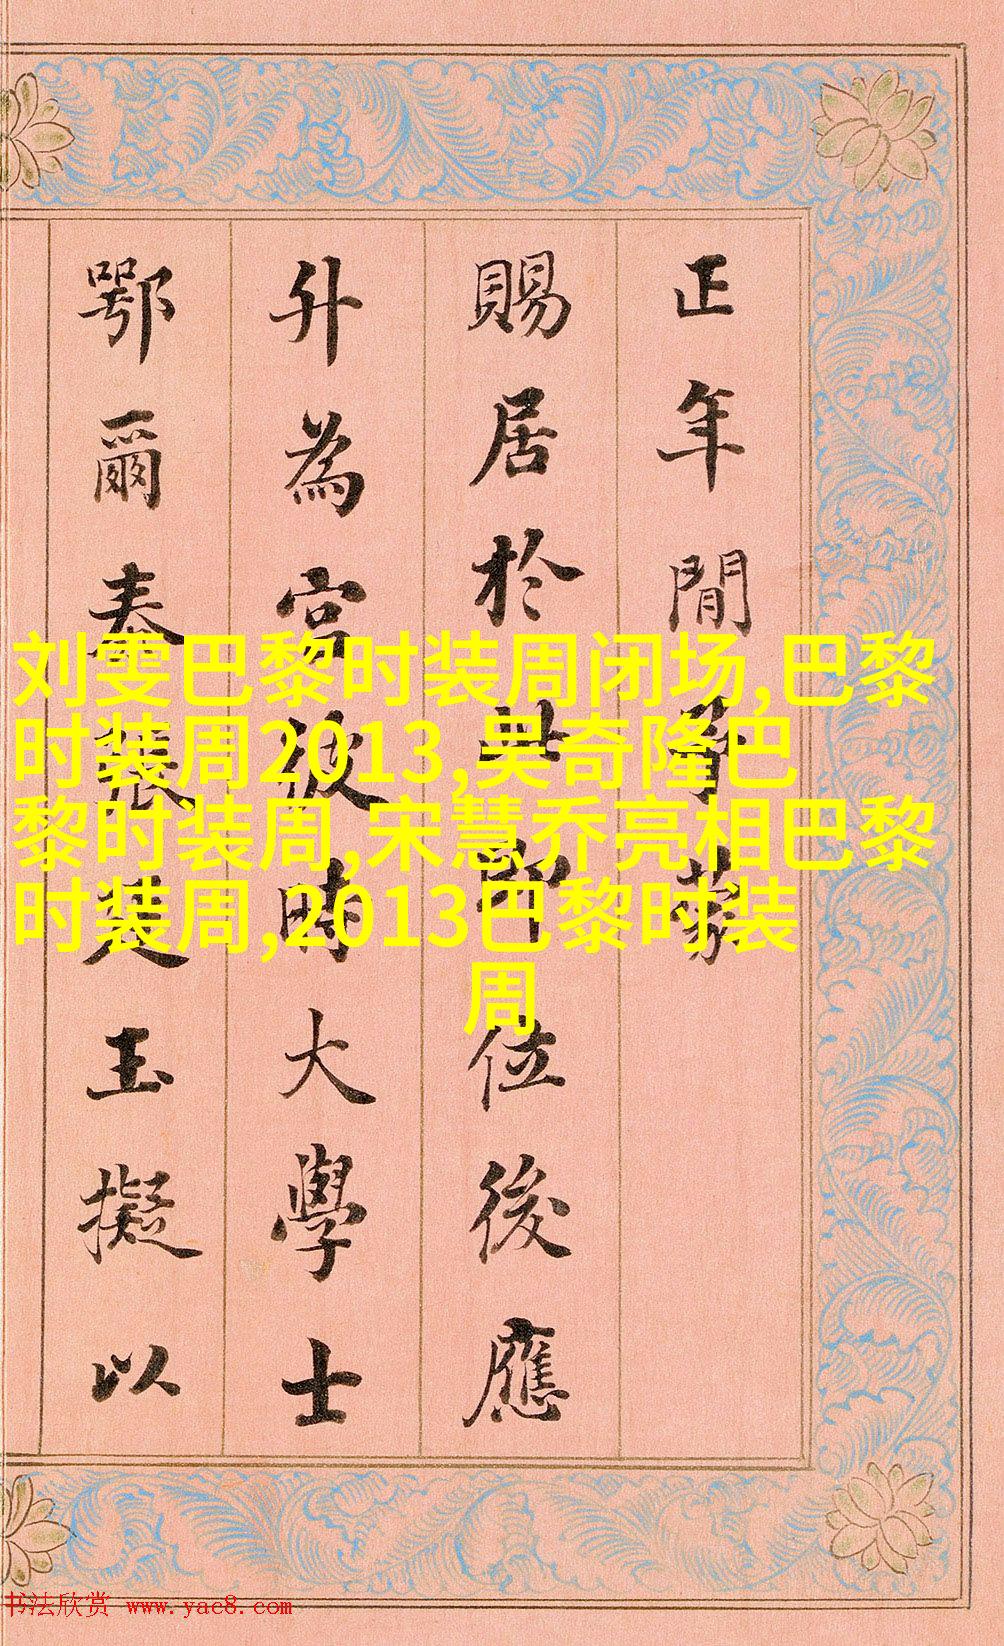 正年間予蒙
賜居於此即位後應
升為宮彼時大學士
鄂爾泰張廷玉擬以
刘雯巴黎时装周闭场,巴黎
时装周2013,吴奇隆巴
黎时装周,宋慧乔亮相巴黎
时装周,2013巴黎时装
周
书法欣赏 www.yac8.com